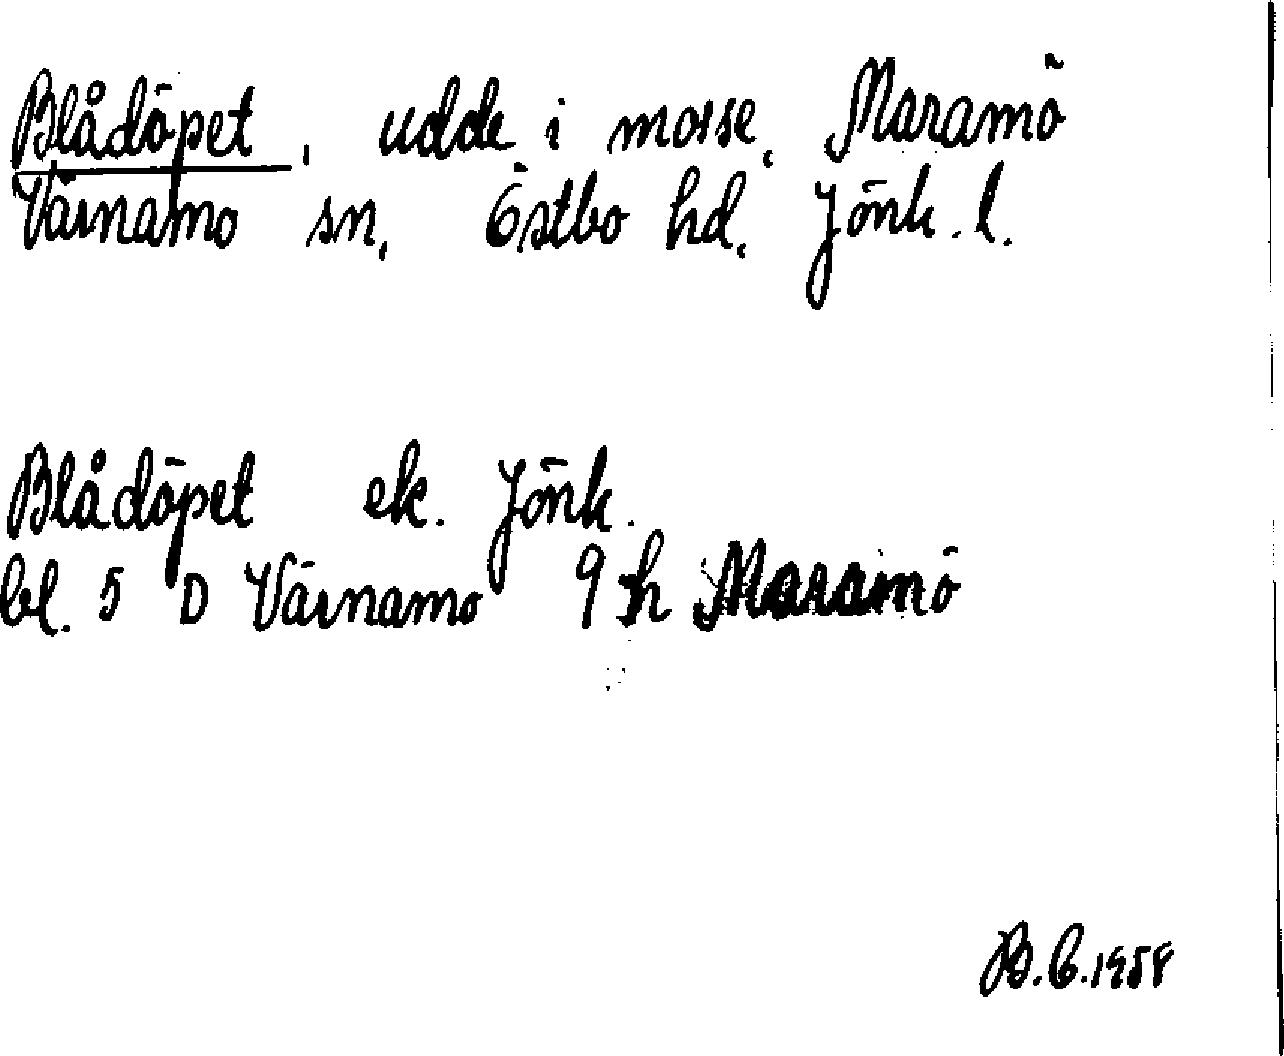 Blådöpet, udde i mosse, Maramö
Värnamo sn, Östbo hd, Jönk. l.
Blådöpet ek. Jönk.
bl. 5 D Värnamo 9 h Maramö
B.E. 1958